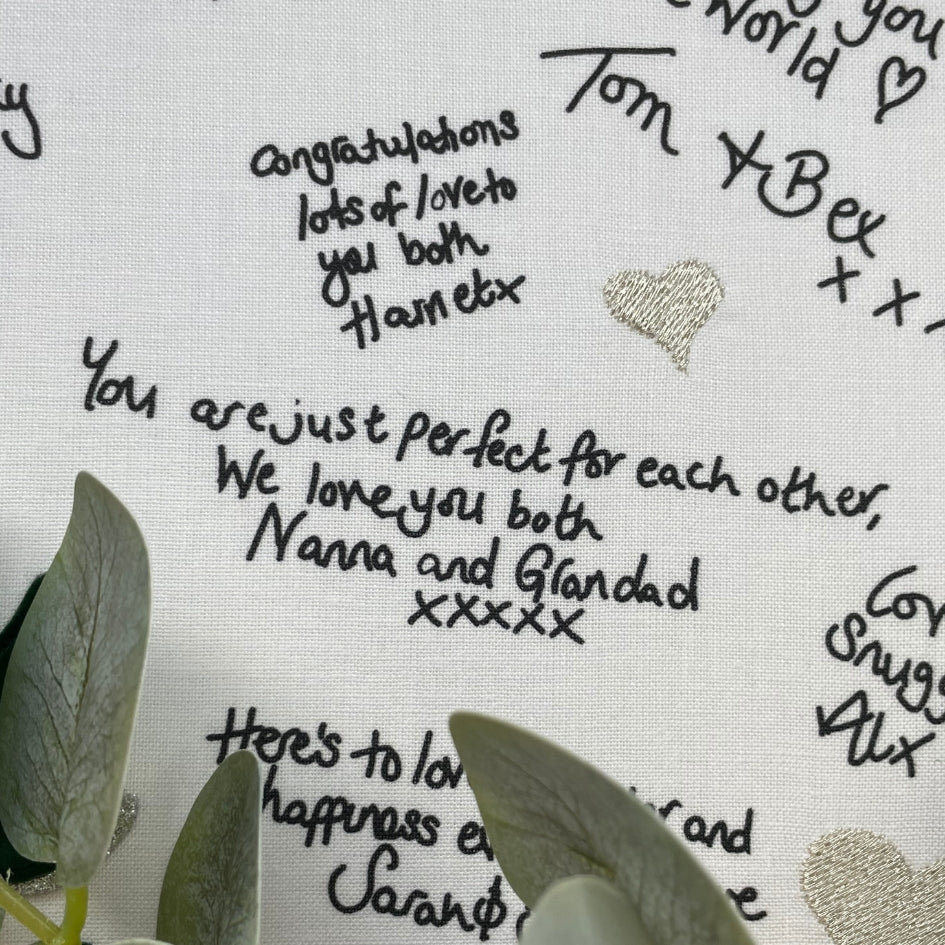 you
World ♡
Tom
& Bex
x x
Congratulations
lots of love to
you both
Harriet x
You are just perfect for each other,
We love you both
Nanna and Grandad
xxxxx
Here's to
happiness
and
Sarah &